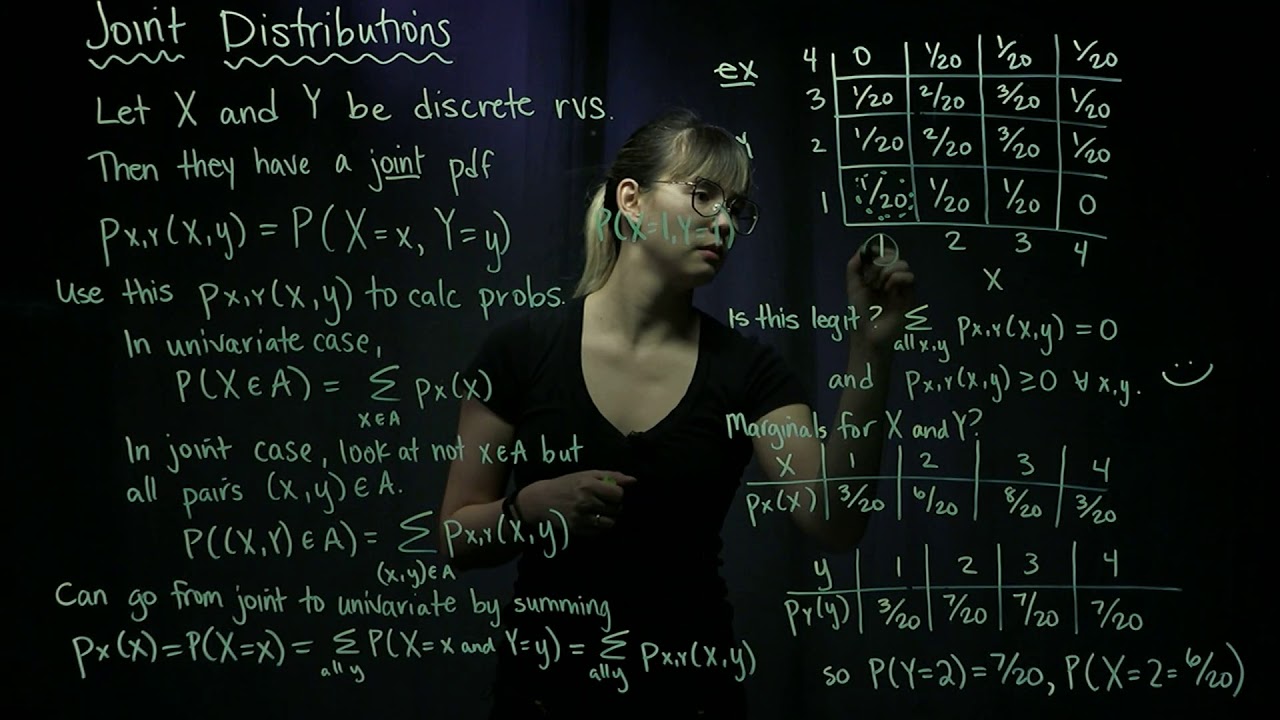 Joint Distributions
Let X and Y be discrete rvs.
Then they have a joint pdf
px,y(x,y) = P(X=x, Y=y)
Use this px,y(x,y) to calc probs.
In univariate case,
P(X∈A) = Σ px(x)
x∈A
In joint case, look at not x∈A but
all pairs (x,y)∈A.
P((X,Y)∈A) = Σ px,y(x,y)
(x,y)∈A
Can go from joint to univariate by summing
px(x)=P(X=x)= Σ P(X=x and Y=y) = Σ px,y(x,y)
all y all y
P(X=1,Y=1)
ex
4 0 1/20 1/20 1/20
3 1/20 2/20 3/20 1/20
Y
2 1/20 2/20 3/20 1/20
1 1/20 1/20 1/20 0
1 2 3 4
X
Is this legit? Σ px,y(x,y) = 0
all x,y
and px,y(x,y) ≥0 ∀ x,y.
Marginals for X and Y?
X 1 2 3 4
px(x) 3/20 6/20 8/20 3/20
y 1 2 3 4
py(y) 3/20 7/20 7/20 7/20
so P(Y=2)=7/20, P(X=2=6/20)